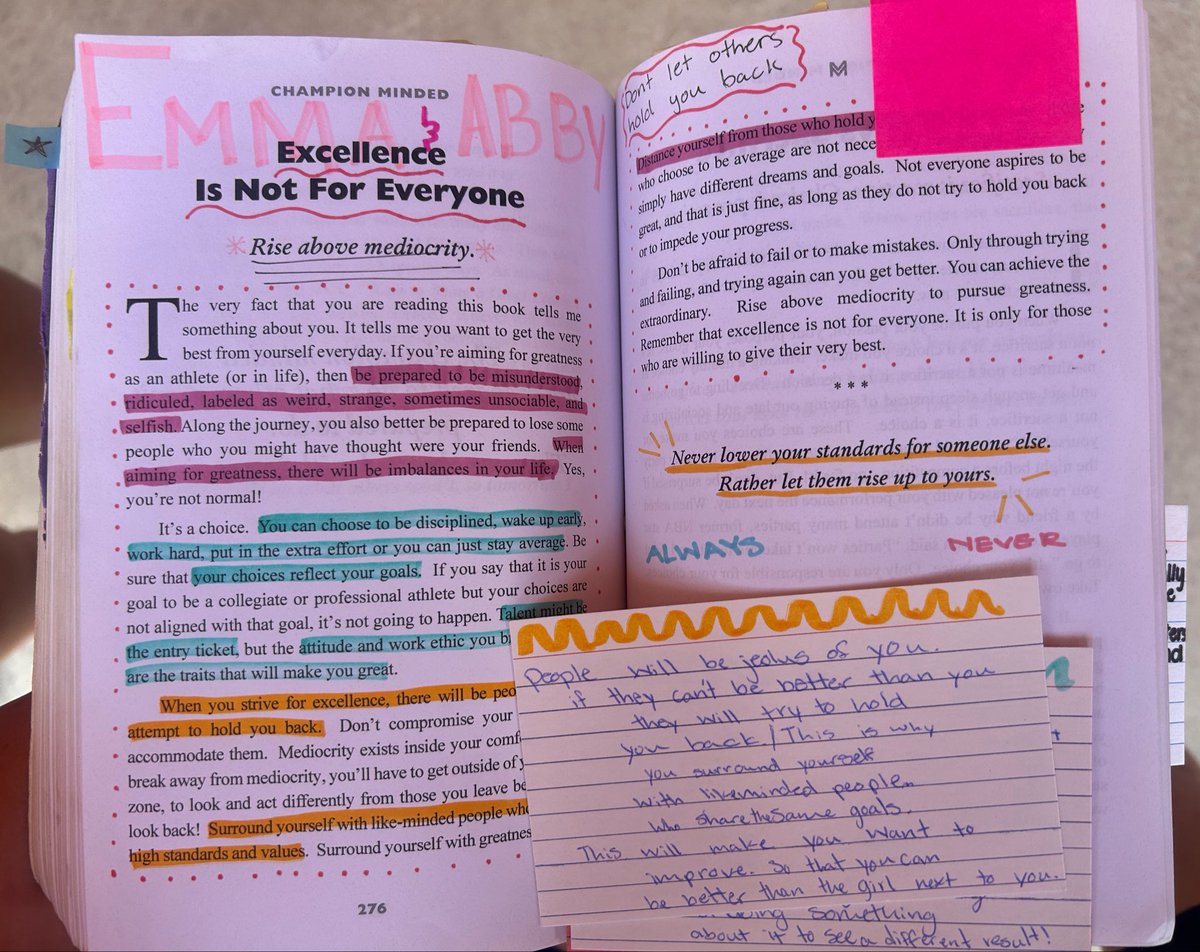 EMMA & ABBY
CHAMPION MINDED
Excellence
Is Not For Everyone
Rise above mediocrity.
The very fact that you are reading this book tells me
something about you. It tells me you want to get the very
best from yourself everyday. If you're aiming for greatness
as an athlete (or in life), then be prepared to be misunderstood,
ridiculed, labeled as weird, strange, sometimes unsociable, and
selfish. Along the journey, you also better be prepared to lose some
people who you might have thought were your friends. When
aiming for greatness, there will be imbalances in your life. Yes,
you're not normal!
It's a choice. You can choose to be disciplined, wake up early,
work hard, put in the extra effort or you can just stay average. Be
sure that your choices reflect your goals. If you say that it is your
goal to be a collegiate or professional athlete but your choices are
not aligned with that goal, it's not going to happen. Talent might be
the entry ticket, but the attitude and work ethic you
are the traits that will make you great.
When you strive for excellence, there will be
attempt to hold you back. Don't compromise your
accommodate them. Mediocrity exists inside your
break away from mediocrity, you'll have to get outside of
zone, to look and act differently from those you leave
look back! Surround yourself with like-minded people who
high standards and values. Surround yourself with
276
Dont let others
hold you back
Distance yourself from those who hold
who choose to be average are not
simply have different dreams and goals. Not everyone aspires to be
great, and that is just fine, as long as they do not try to hold you back
or to impede your progress.
Don't be afraid to fail or to make mistakes. Only through trying
and failing, and trying again can you get better. You can achieve the
extraordinary. Rise above mediocrity to pursue greatness.
Remember that excellence is not for everyone. It is only for those
who are willing to give their very best.
* * *
Never lower your standards for someone else.
Rather let them rise up to yours.
ALWAYS NEVER
People will be jeolus of you.
if they can't be better than you
they will try to hold
you back. / This is why
you surround yourself
with likeminded people
who share the same goals.
This will make you want to
improve. So that you can
be better than the girl next to you.
something
about it to see a different result!